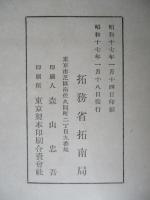 昭和十七年一月十四日印刷
昭和十七年一月十八日発行
拓務省拓南局
東京市芝區南佐久間町二丁目九番地
印刷人 森山忠吾
印刷所 東京製本印刷合資會社